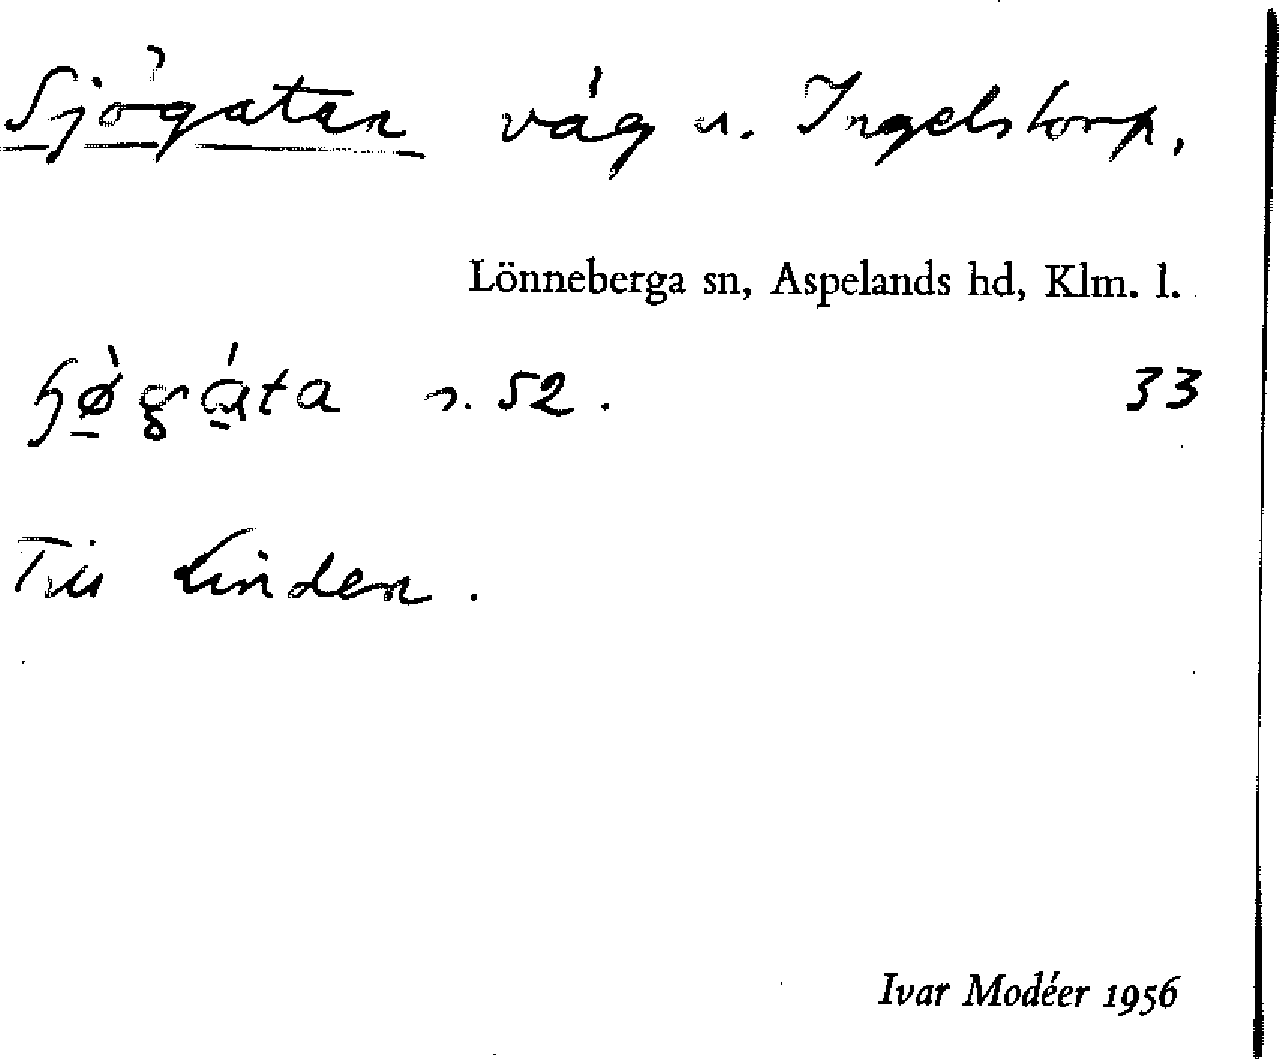 Sjögatan väg u. Ingelstorp.
Lönneberga sn, Aspelands hd, Klm. l.
s. 52. 33
Till Linden.
Ivar Modéer 1956